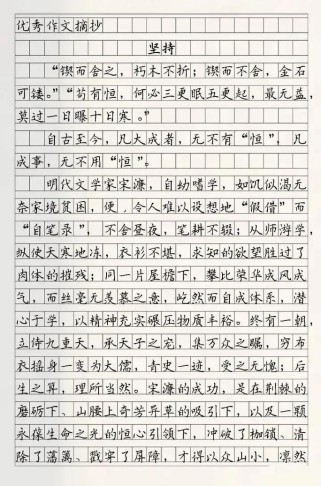 优秀作文摘抄
坚持
“锲而舍之，朽木不折；锲而不舍，金石
可镂。”“苟有恒，何必三更眠五更起，最无益，
莫过一日曝十日寒。”
自古至今，凡大成者，无不有“恒”，凡
成事，无不用“恒”。
明代文学家宋濂，自幼嗜学，如饥似渴无
奈家境贫困，便，令人难以设想地“假借”而
“自笔录”，不舍昼夜，笔耕不辍；从师游学，
纵使天寒地冻，衣衫不堪，求知的欲望胜过了
肉体的摧残；同一片屋檐下，攀比荣华成风成
气，而丝毫无羡慕之意，屹然而自成体系，潜
心于学，以精神充实碾压物质丰裕。终有一朝，
立侍九重天，承天子之宠，集万众之瞩，穷布
衣摇身一变为大儒，青史一迹，受之无愧；后
生之耳，理所当然。宋濂的成功，是在荆棘的
磨砺下、山腰上奇芳异草的吸引下，以及一颗
永葆生命之光的恒心引领下，冲破了枷锁、清
除了藩篱、戳穿了屏障，才得以众山小，凛然